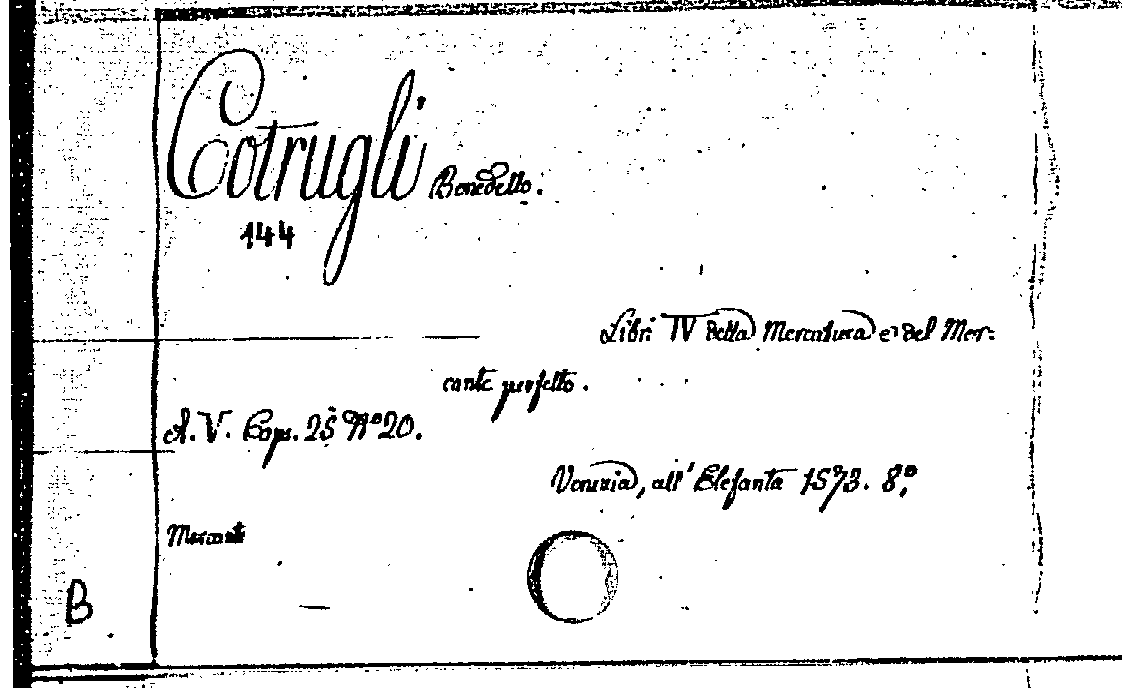 Cotrugli Benedetto.
144
Libri IV della Mercatura e del Mer:
cante perfetto.
A. V. Caps. 25 N° 20.
Venezia, all' Elefanta 1573. 8°.
Mercante
B